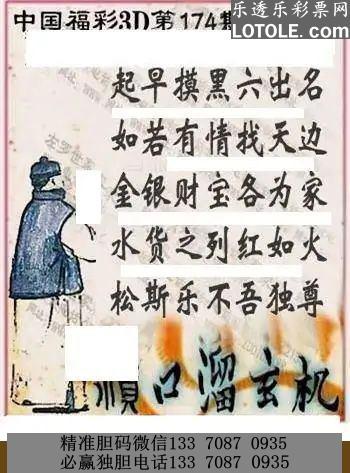 中国福彩3D第174期
乐透乐彩票网
LOTOLE.COM
起早摸黑六出名
如若有情找天边
金银财宝各为家
水货之列红如火
松斯乐不吾独尊
顺口溜玄机
精准胆码微信133 7087 0935
必赢独胆电话133 7087 0935